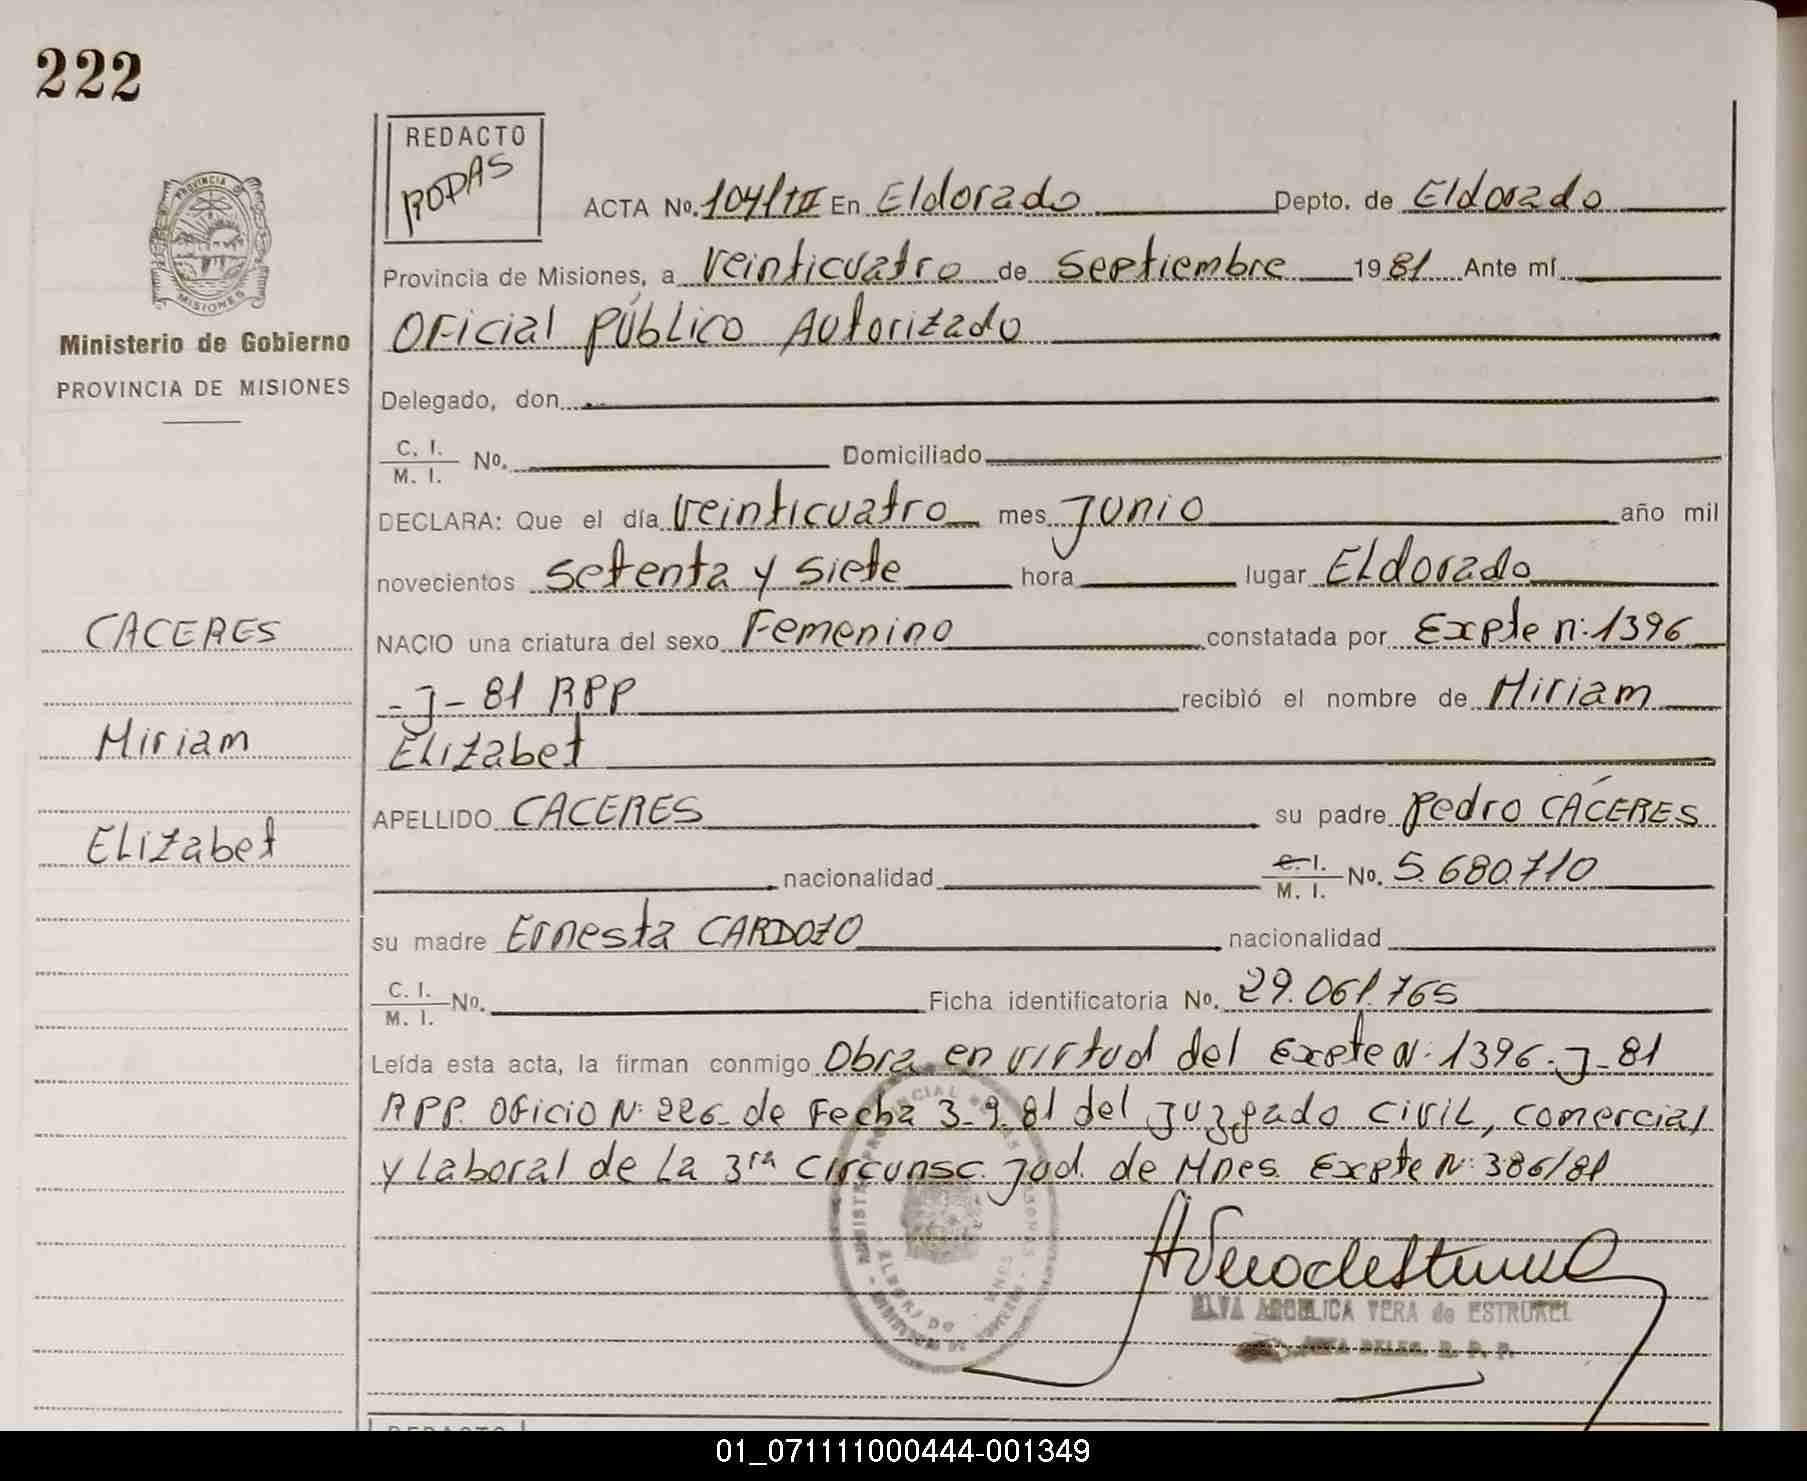 222
REDACTO
RODAS
PROVINCIA DE
MISIONES
Ministerio de Gobierno
PROVINCIA DE MISIONES
ACTA No. 104/tII En Eldorado Depto. de Eldorado
Provincia de Misiones, a veinticuatro de Septiembre 1981 Ante mí
Oficial Público Autorizado
Delegado, don
C. I.
M. I. No. Domiciliado
DECLARA: Que el día veinticuatro mes Junio año mil
novecientos setenta y siete hora lugar Eldorado
CACERES
NACIO una criatura del sexo Femenino constatada por Expte n: 1396
- J - 81 RPP recibió el nombre de Miriam
Miriam
Elizabet
Elizabet
APELLIDO CACERES su padre Pedro CÁCERES
nacionalidad C. I. M. I. No. 5.680.710
su madre Ernesta CARDOZO nacionalidad
C. I.
M. I. No. Ficha identificatoria No. 29.061.765
Leída esta acta, la firman conmigo Obra en virtud del Expte N: 1396-J-81
RPP. Oficio N: 226- de Fecha 3-9-81 del Juzgado Civil, comercial
y Laboral de La 3ra Circunsc. Jud. de Mnes. Expte N: 386/81
ELVA ANGELICA VERA de ESTRUREL
R. P. P.
REDACTO
01_071111000444-001349